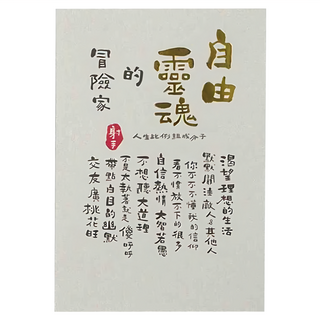 自由
靈魂
的
冒險家
射手
人生比例組成分子
渴望理想的生活
默默開清敵人與其他人
你不不懂我的信仰
看不慣放不下的很多
自信熱情大智若愚
不想聽大道理
不是大執著就是傻呼呼
帶點自目的幽默
交友廣桃花旺